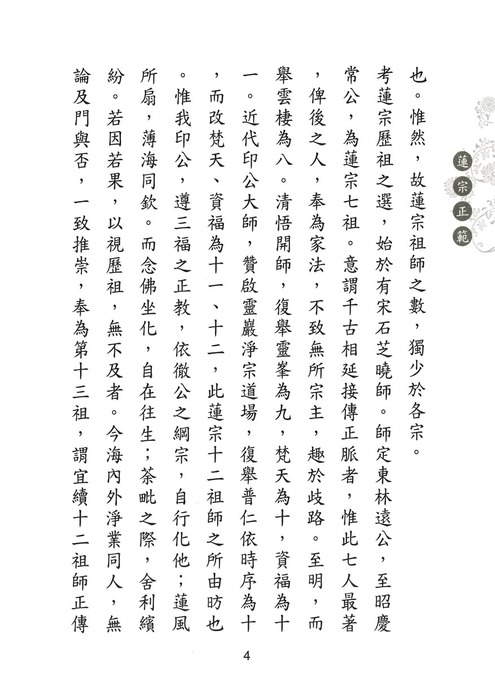 蓮宗正範
也。惟然，故蓮宗祖師之數，獨少於各宗。
考蓮宗歷祖之選，始於有宋石芝曉師。師定東林遠公，至昭慶
常公，為蓮宗七祖。意謂千古相延接傳正脈者，惟此七人最著
，俾後之人，奉為家法，不致無所宗主，趣於歧路。至明，而
舉雲棲為八。清悟開師，復舉靈峯為九，梵天為十，資福為十
一。近代印公大師，贊啟靈巖淨宗道場，復舉普仁依時序為十
，而改梵天、資福為十一、十二，此蓮宗十二祖師之所由昉也
。惟我印公，遵三福之正教，依徹公之綱宗，自行化他；蓮風
所扇，薄海同欽。而念佛坐化，自在往生；荼毗之際，舍利繽
紛。若因若果，以視歷祖，無不及者。今海內外淨業同人，無
論及門與否，一致推崇，奉為第十三祖，謂宜續十二祖師正傳
4